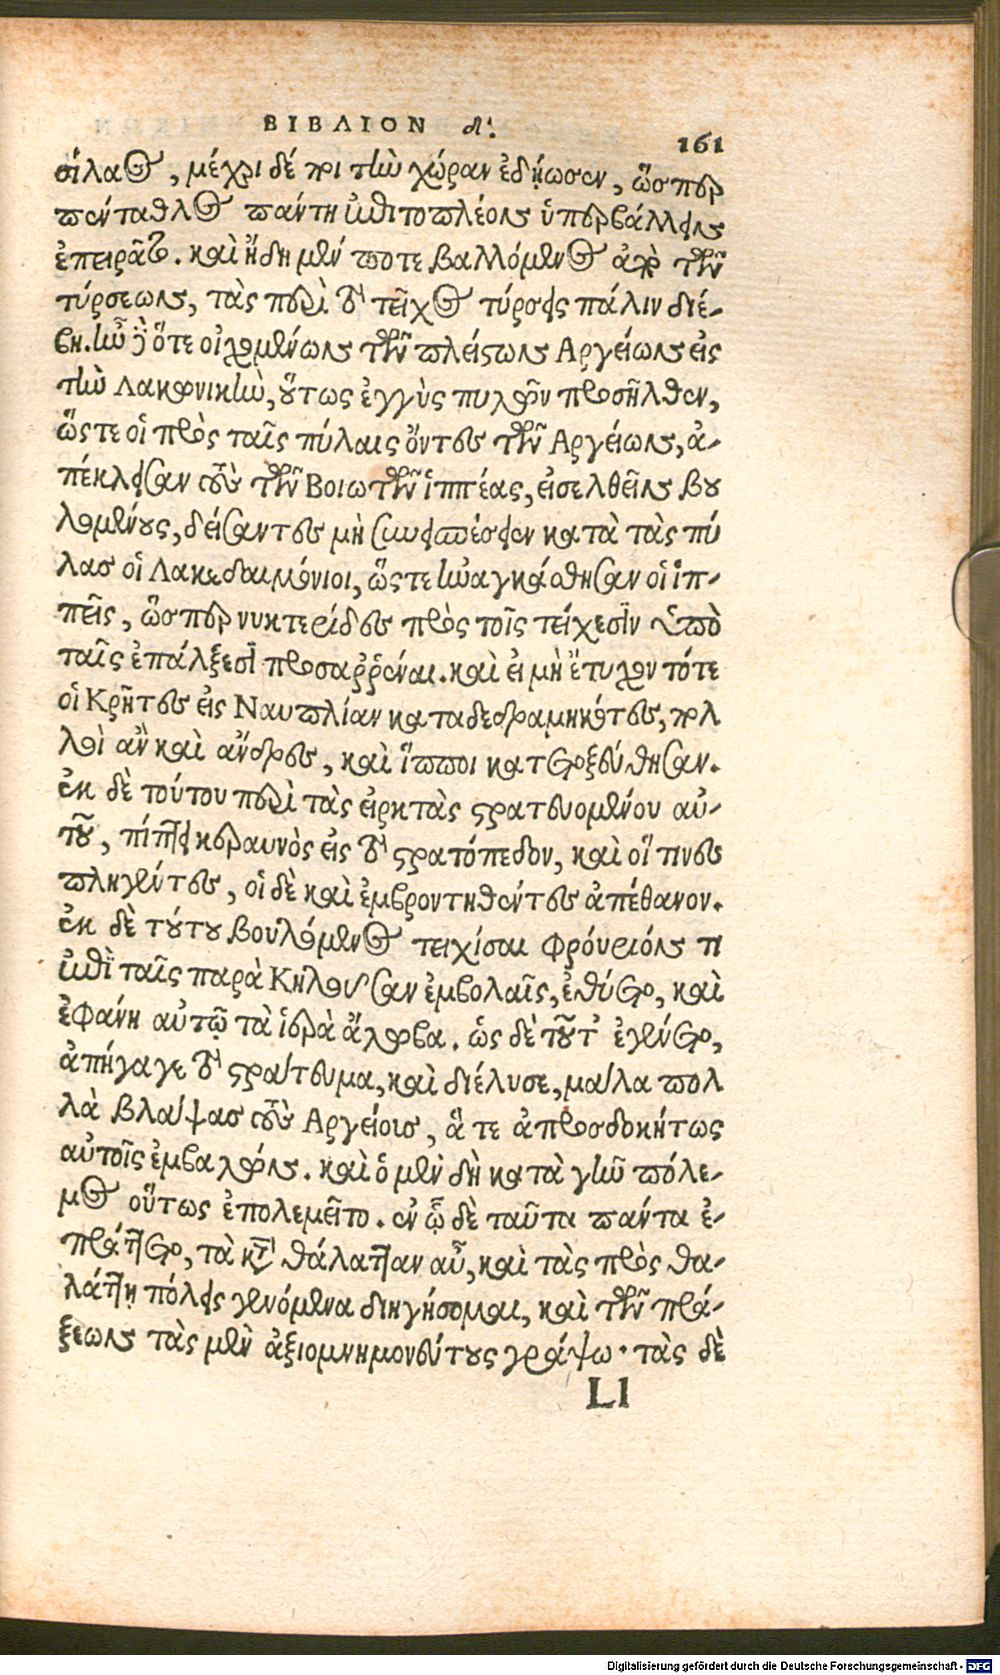 ΒΙΒΛΙΟΝ δ'.
161
σίλαος, μέχρι δέ ποι τὴν χώραν ἐδῄωσεν, ὥσπερ
πένταθλος πάντη ἐπὶ τὸ πλέον ὑπερβάλλειν
ἐπειρᾶτο. καὶ ἤδη μέν ποτε βαλλόμενος ἀπὸ τῶν
τύρσεων, τὰς περὶ τὸ τεῖχος τύρσεις πάλιν διέ-
βη. ἦν δ' ὅτε οἰχομένων τῶν πλείστων Αργείων εἰς
τὴν Λακωνικὴν, οὕτως ἐγγὺς πυλῶν προσῆλθεν,
ὥςτε οἱ πρὸς ταῖς πύλαις ὄντες τῶν Αργείων, ἀ-
πέκλεισαν τοὺς τῶν Βοιωτῶν ἱππέας, εἰσελθεῖν βου
λομένους, δείσαντες μὴ συνεισπέσειεν κατὰ τὰς πύ
λας οἱ Λακεδαιμόνιοι, ὥςτε ἠναγκάσθησαν οἱ ἱπ-
πεῖς, ὥσπερ νυκτερίδες πρὸς τοῖς τείχεσιν ὑπὸ
ταῖς ἐπάλξεσι προσαῤῥέναι. καὶ εἰ μὴ ἔτυχον τότε
οἱ Κρῆτες εἰς Ναυπλίαν καταδεδραμηκότες, πολ
λοὶ ἂν καὶ ἄνδρες, καὶ ἵπποι κατετοξεύθησαν.
ἐκ δὲ τούτου περὶ τὰς εἱρκτὰς στρατευομένου αὐ-
τοῦ, πίπτει κεραυνὸς εἰς τὸ στρατόπεδον, καὶ οἵ τινες
πληγέντες, οἱ δὲ καὶ ἐμβροντηθέντες ἀπέθανον.
ἐκ δὲ τούτου βουλόμενος τειχίσαι φρούριόν τι
ἐπὶ ταῖς παρὰ Κηλοῦσαν ἐμβολαῖς, ἐθύετο, καὶ
ἐφάνη αὐτῷ τὰ ἱερὰ ἄλοβα. ὡς δὲ τοῦτ' ἐγένετο,
ἀπήγαγε τὸ στράτευμα, καὶ διέλυσε, μάλα πολ
λὰ βλάψας τοὺς Αργείοις, ἅ τε ἀπροσδοκήτως
αὐτοῖς ἐμβαλών. καὶ ὁ μὲν δὴ κατὰ γῆν πόλε-
μος οὕτως ἐπολεμεῖτο. ἐν ᾧ δὲ ταῦτα πάντα ἐ-
πράττετο, τὰ κατὰ θάλατταν αὖ, καὶ τὰς πρὸς θα-
λάττῃ πόλεις γενόμενα διηγήσομαι, καὶ τῶν πρά-
ξεων τὰς μὲν ἀξιομνημονεύτους γράψω· τὰς δὲ
Ll
Digitalisierung gefördert durch die Deutsche Forschungsgemeinschaft - DFG